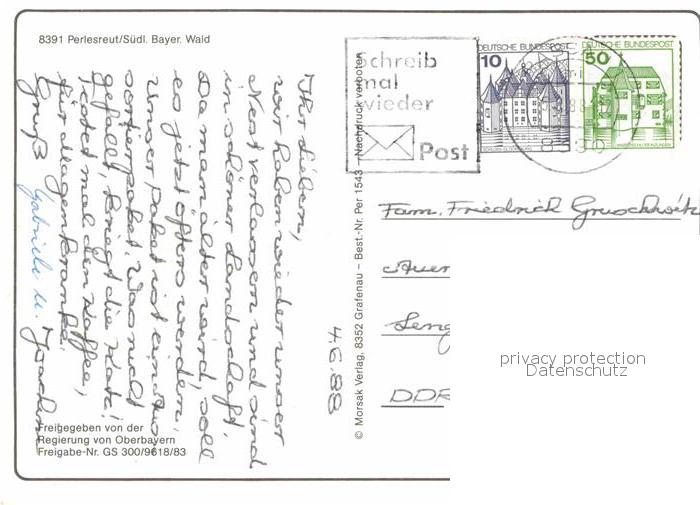 8391 Perlesreut/Südl. Bayer. Wald
Ihr Lieben,
wir haben wieder unser
Nest verlassen und sind
in schöner Landschaft.
Da man älter wird, soll
es jetzt öfters werden.
Unser Paket ist ein
sortierpaket. Was nicht
gefällt, kriegt die Katz!
Testet mal den Kaffee,
für Magenkranke.
Gruß Gabriele u. Joachim
4.6.88
Freigegeben von der
Regierung von Oberbayern
Freigabe-Nr. GS 300/9618/83
© Morsak Verlag, 8352 Grafenau – Best.-Nr. Per 1543 – Nachdruck verboten
Schreib
mal
wieder
Post
DEUTSCHE BUNDESPOST
10
DEUTSCHE BUNDESPOST
50
Fam. Friedrich Gruschwitz
Auer
Leng
DDR
privacy protection
Datenschutz